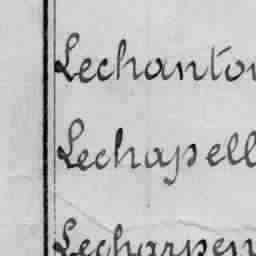 Lechanton
Lechapell
Lecharpen